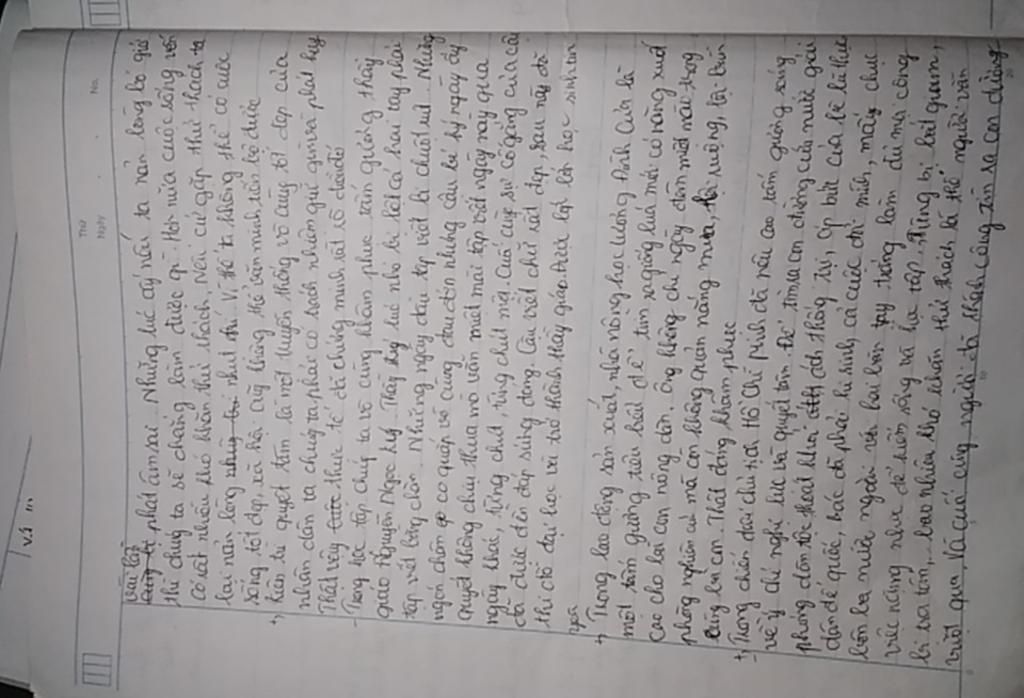 Thứ
Ngày
No.
Ví ...
bài tập
phát âm sai. Những lúc ấy nếu ta nản lòng bỏ giở
thì chúng ta sẽ chẳng làm được gì. Hơn nữa cuộc sống vốn
có rất nhiều khó khăn thử thách, nếu cứ gặp thử thách ta
lại nản lòng như thế. Vì thế ta không thể có cuộc
sống tốt đẹp, xã hội cũng không thể văn minh tiến bộ được
+) kiên trì quyết tâm là một truyền thống vô cùng tốt đẹp của
nhân dân ta chúng ta phải có trách nhiệm giữ gìn và phát huy
Thật vậy thực tế đã chứng minh rất rõ điều đó
- Trong học tập chúng ta vô cùng khâm phục tấm gương thầy
giáo Nguyễn Ngọc Ký. Thầy Ký lúc nhỏ bị liệt cả hai tay phải
tập viết bằng chân. Những ngày đầu tập viết bị chuột rút. Những
ngón chân co quắp vô cùng đau đớn nhưng cậu bé Ký ngày ấy
quyết không chịu thua mà vẫn miệt mài tập viết ngày này qua
ngày khác, từng chút, từng chút một. Cuối cùng sự cố gắng của cậu
đã được đền đáp xứng đáng. Cậu viết chữ rất đẹp, sau này đỗ
thi đỗ đại học và trở thành thầy giáo trước lớp lớp học sinh thân
yêu
+) Trong lao động sản xuất, nhà nông học Lương Đình Của là
một tấm gương tiêu biểu để tìm ra giống lúa mới có năng xuất
cao cho bà con nông dân. ông không chỉ ngày đêm miệt mài trong
phòng nghiên cứ mà còn không quản nắng mưa, lội ruộng, lội bùn
cùng bà con. Thật đáng khâm phục
+) Trong chiến đấu chủ tịch Hồ Chí Minh đã nêu cao tấm gương sáng
về ý chí nghị lực và quyết tâm. Để tìm ra con đường cứu nước giải
phóng dân tộc thoát khỏi ách thống trị, áp bức của bè lũ thực
dân đế quốc, bác đã phải hi sinh, cả cuộc đời mình, mấy chục
bôn ba nước ngoài với hai bàn tay trắng làm đủ mọi công
việc nặng nhọc để kiếm sống và học tập. Từng bị bắt giam,
bị tra tấn, bao nhiêu khó khăn thử thách là thế người vẫn
vượt qua. Và cuối cùng người đã thành công tìm ra con đường